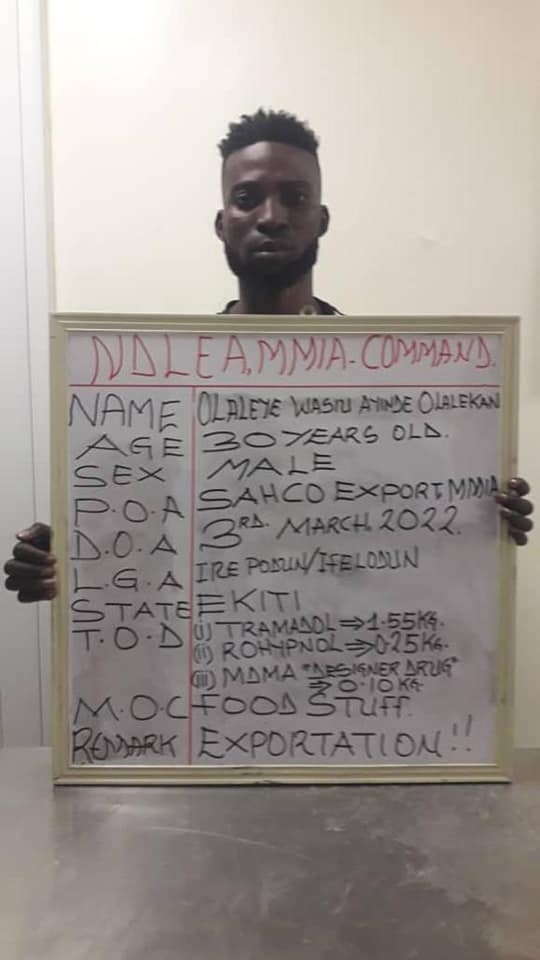 NDLEA, MMIA-COMMAND.
NAME OLALEYE WASIU AYINDE OLALEKAN
AGE 30 YEARS OLD.
SEX MALE
P.O.A SAHCO EXPORT MMIA
D.O.A 3RD. MARCH 2022.
L.G.A IRE PODUN/IFELODUN
STATE EKITI
T.O.D (i) TRAMADOL ⇒ 1.55KG.
(ii) ROHYPNOL ⇒ 0.25KG.
(iii) MDMA "DESIGNER DRUG"
⇒ 0.10KG
M.O.C FOOD STUFF.
REMARK EXPORTATION!!